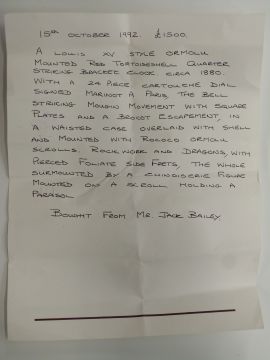 15th OCTOBER 1992. £1500.
A LOUIS XV STYLE ORMOLU
MOUNTED RED TORTOISESHELL QUARTER
STRIKING BRACKET CLOCK CIRCA 1880.
WITH A 24 PIECE CARTOUCHE DIAL
SIGNED MARINOT A PARIS, THE BELL
STRICING MOUGIN MOVEMENT WITH SQUARE
PLATES AND A BROCOT ESCAPEMENT, IN
A WAISTED CASE OVERLAID WITH SHELL
AND MOUNTED WITH ROCOCO ORMOLU
SCROLLS. ROCKWORK AND DRAGONS, WITH
PIERCED FOLIATE SIDE FRETS, THE WHOLE
SURMOUNTED BY A CHINOISERIE FIGURE
MOUNTED ON A SCROLL HOLDING A
PARASOL
BOUGHT FROM MR. JACK BAILEY